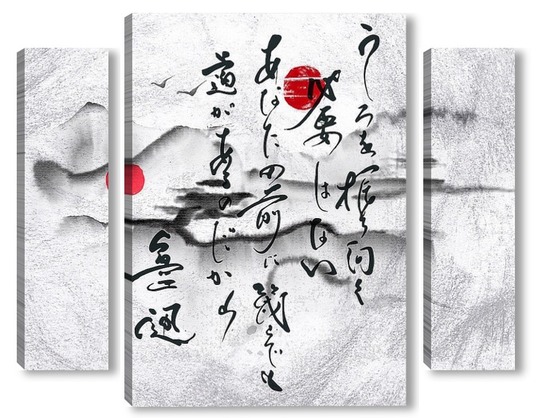 うしろを振り向く
必要はない
あなたの前には幾らでも
道があるのだから
魯迅